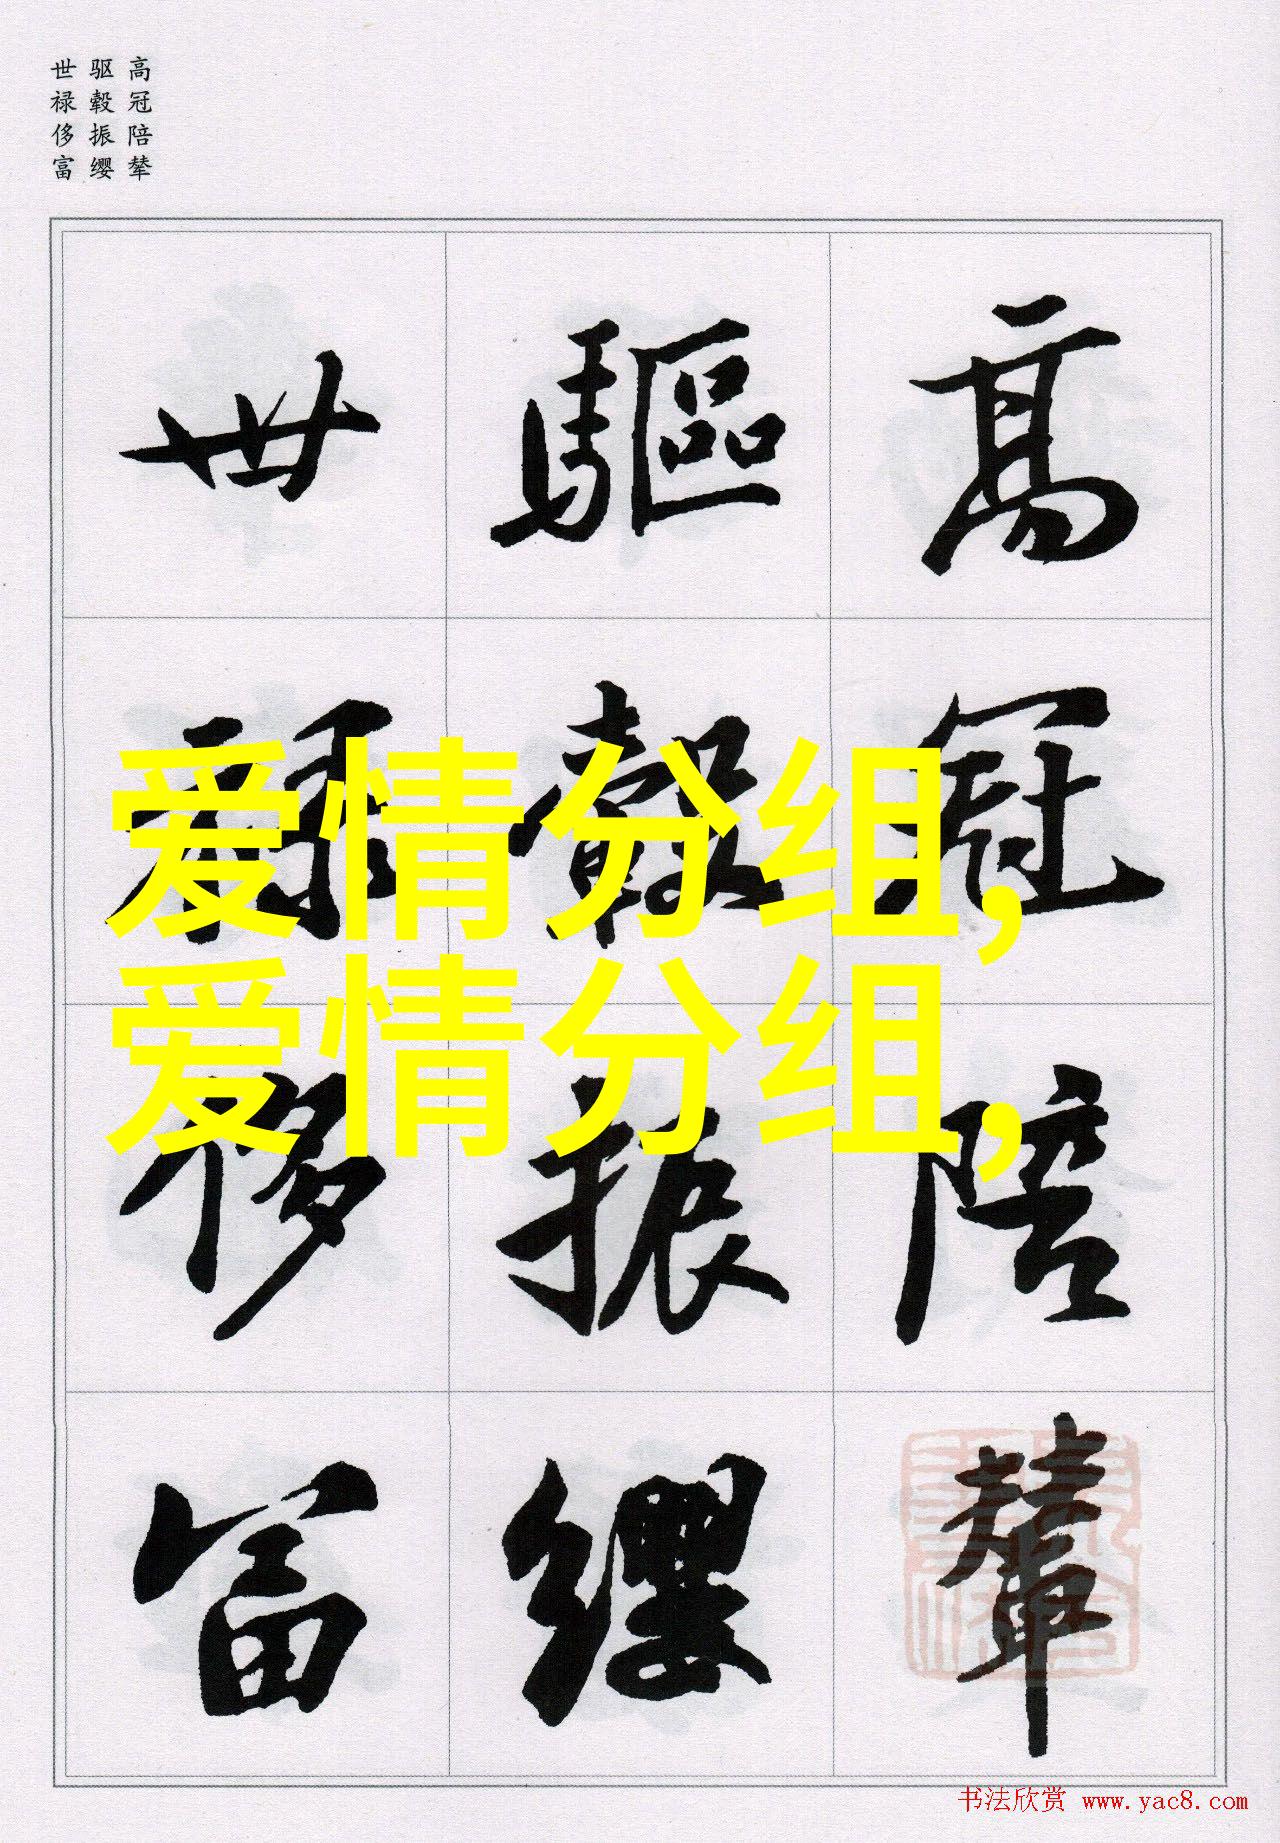 高冠陪辇
驱毂振缨
世禄侈富
高冠陪輦
驅轂振纓
世祿侈富
爱情分组,
爱情分组,
书法欣赏 www.yac8.com